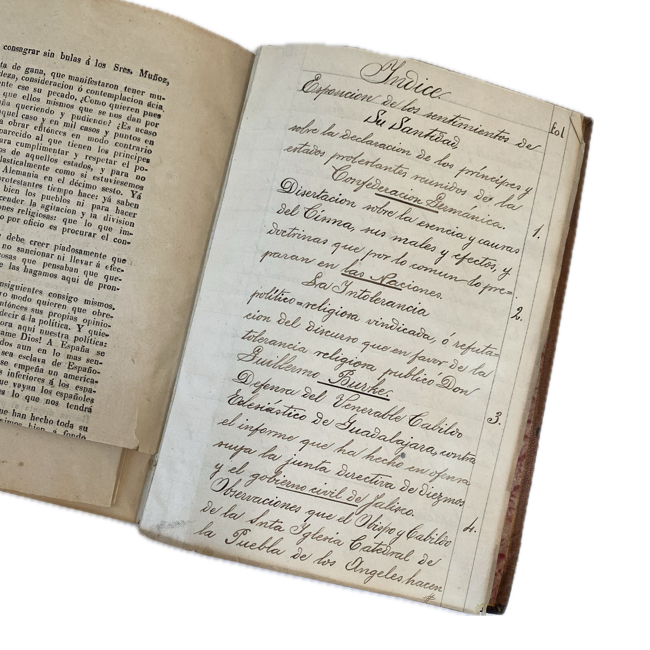 consagrar sin bulas á los Sres. Muñoz,
ta de gana, que manifestaron tener mu-
deza, consideracion ó contemplacion ácia
nte ese su pecado, ¿Como quieren pues
que ellos mismos que se nos dan por
ia queriendo y pudiendo? ¿Es acaso
quel caso y en mil casos y puntos en
a obrar entónces en modo contrario
parecido al que tienen los principes
ara cumplimentar y respetar el po-
os de aquellos estados, y para no
lasticamente como si estuviesemos
Alemania en el décimo sesto. Ya
rotestantes tiempo hace: ya saben
bien los pueblos ni para hacer
cender la agitacion y la division
nes religiosas: que lo que im-
por oficio es procurar el con-
debe creer piadosamente que
no sancionar ni llevar á efec-
osas que pensaban que que-
e las hagamos aquí de pron-
nsiguientes consigo mismos,
ro modo quieren que obre-
ntónces sus propias opinio-
decir á la política. Y quie-
ora aquí nuestra política:
ame Dios! A España se
dos aun en lo mas sen-
sea esclava de Españo-
se empeña un america-
inferiores á los espa-
ue vayan los españoles
lo que nos tendrá
ue han hecho toda su
cimos bien á fondo
Indice
Fol
Esposicion de los sentimientos de
Su Santidad
sobre la declaracion de los príncipes y
estados protestantes reunidos de la
Confederacion Germánica. 1.
Disertacion sobre la esencia y causas
del Cisma, sus males y efectos, y
doctrinas que por lo comun lo pre=
paran en las Naciones. 2.
La Intolerancia
político=religiosa vindicada, ó refuta=
cion del discurso que en favor de la
tolerancia religiosa publicó Don
Guillermo Burke. 3.
Defensa del Venerable Cabildo
Eclesiástico de Guadalajara, contra
el informe que ha hecho en ofensa
suya la junta directiva de diezmos
y el gobierno civil de Jalisco. 4.
Observaciones que el Obispo y Cabildo
de la Snta Iglesia Catedral de
la Puebla de los Angeles, hacen
#